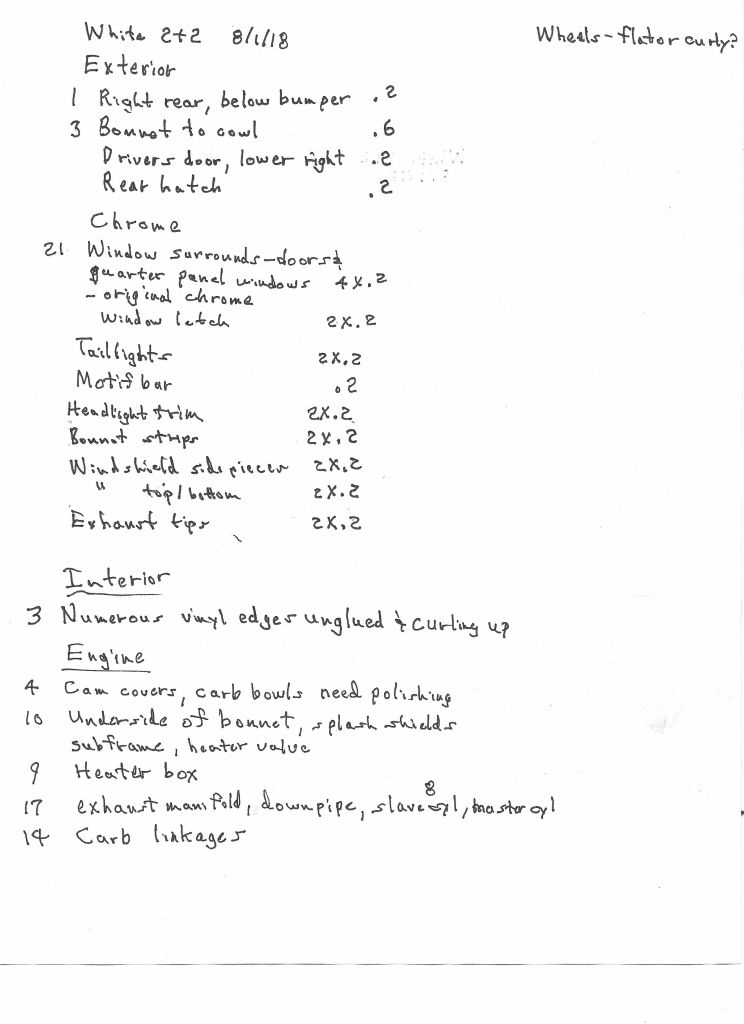 White 2+2 8/1/18 Wheels - flat or curly?
Exterior
1 Right rear, below bumper .2
3 Bonnet to cowl .6
Drivers door, lower right .2
Rear hatch .2
Chrome
21 Window surrounds - doors &
quarter panel windows 4x.2
- original chrome
Window latch 2x.2
Taillights 2x.2
Motif bar .2
Headlight trim 2x.2
Bonnet strips 2x.2
Windshield side pieces 2x.2
" top/bottom 2x.2
Exhaust tips 2x.2
Interior
3 Numerous vinyl edges unglued & curling up
Engine
4 Cam covers, carb bowls need polishing
10 Underside of bonnet, splash shields
subframe, heater valve
9 Heater box
8
17 exhaust manifold, downpipe, slave cyl, master cyl
14 Carb linkages